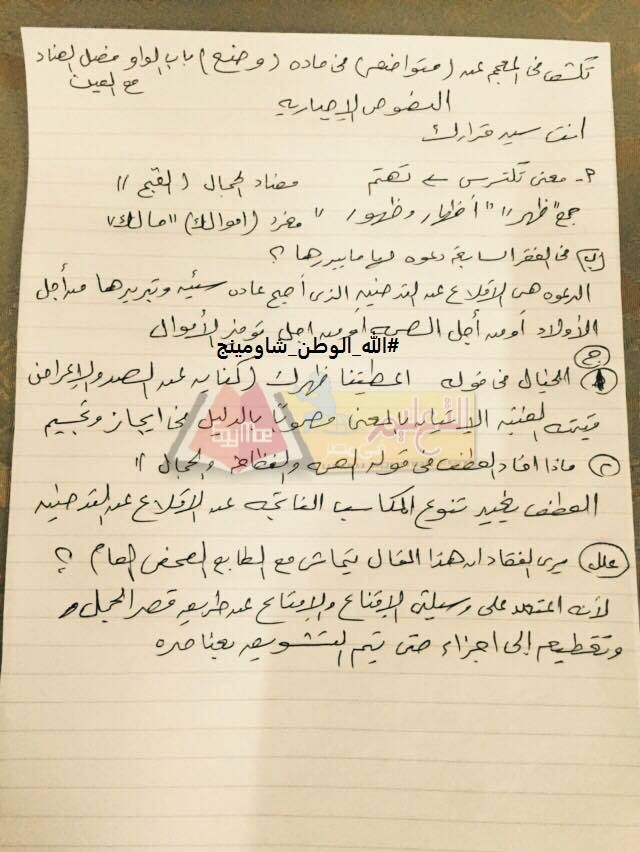 تكشف فى المعجم عن (متواضع) فى مادة (وضع) باب الواو فصل الضاد
مع العين
النصوص الإجبارية
انت سيد قرارك
٣- معنى تكترس ← تهتم مضاد الجمال (القبح)"
جمع "ظهر" "أظهار وظهور" مفرد (اموالك) "مالك"
(ب) فى الفقرة السابقة دعوه لها ما يبررها ؟
الدعوه هى الإقلاع عن التدخين الذى أصبح عاده سيئه وتبريرها من أجل
الأولاد أو من أجل الصحه أو من اجل توفير الأموال
#الله_الوطن_شاومينج
(ج)
١ الخيال فى قوله اعطيتنا ظهرك (كنايه عن الصد والإعراض
قيمته الفنيه الإتيان بالمعنى مصحوبًا بالدليل فى ايجاز وتجسيم
(٢) ماذا افاد العطف فى قوله الصحه والجمال"
العطف يفيد تنوع المكاسب الناتجه عن الاقلاع عن التدخين
(علل) يرى النقاد ان هذا المقال يتماش مع الطابع الصحفى العام ؟
لأنه اعتمد على وسيلتى الإقناع والإمتاع عن طريق قصر الجمل
وتقطيع إلى اجزاء حتى يتم التشويق بعناصره